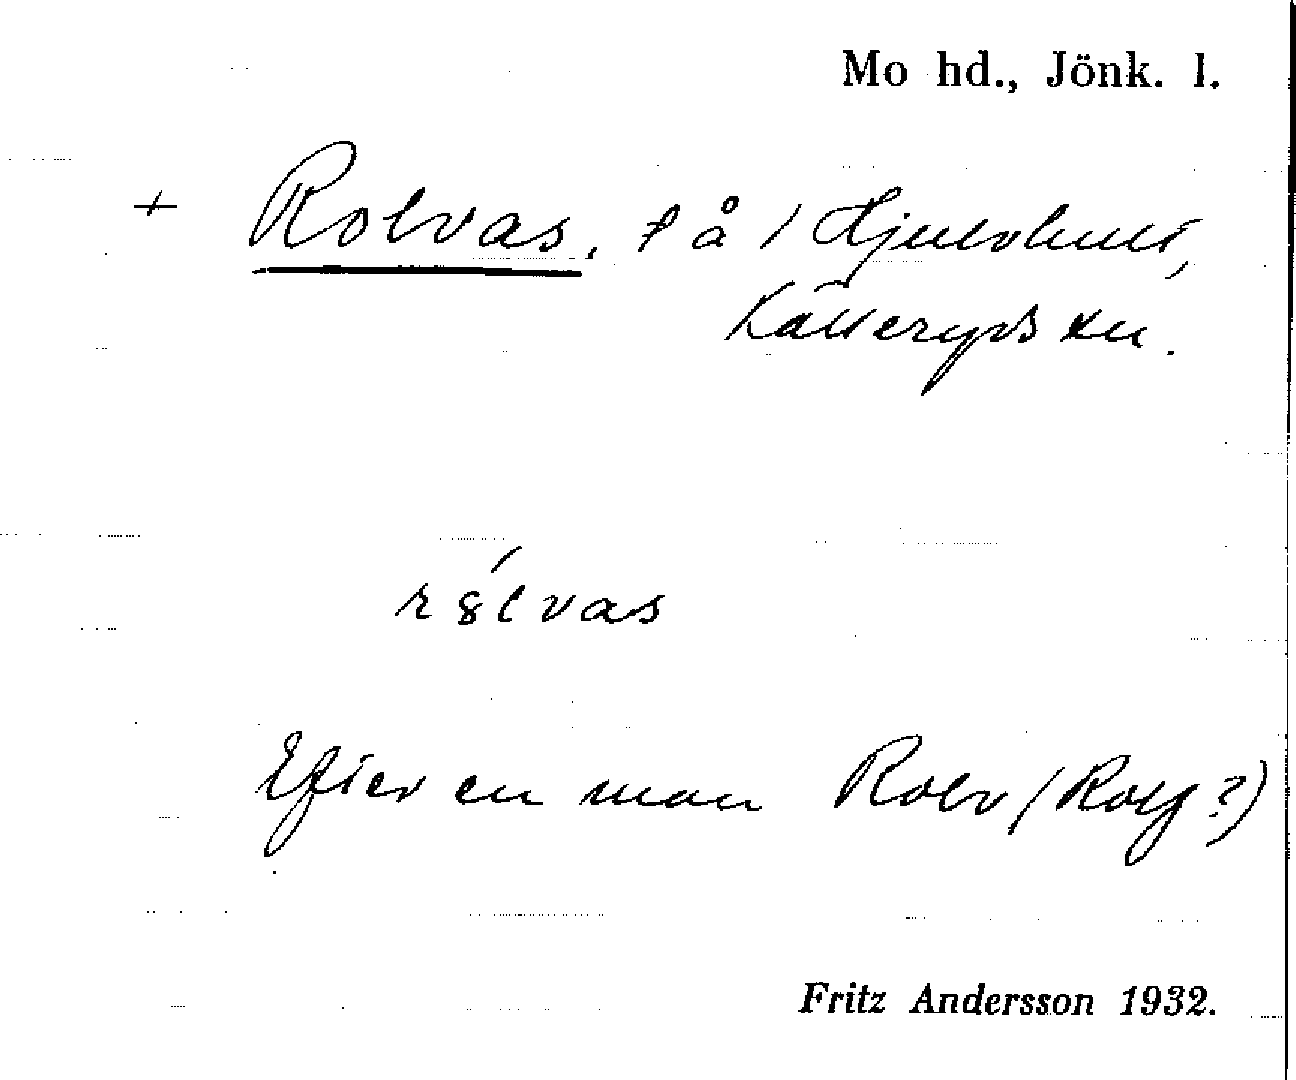 Mo hd., Jönk. l.
+ Rolvas, t å / Hjulvhult,
Källeryds sn.
r8́lvas
Efter en man Rolv (Rolf?)
Fritz Andersson 1932.